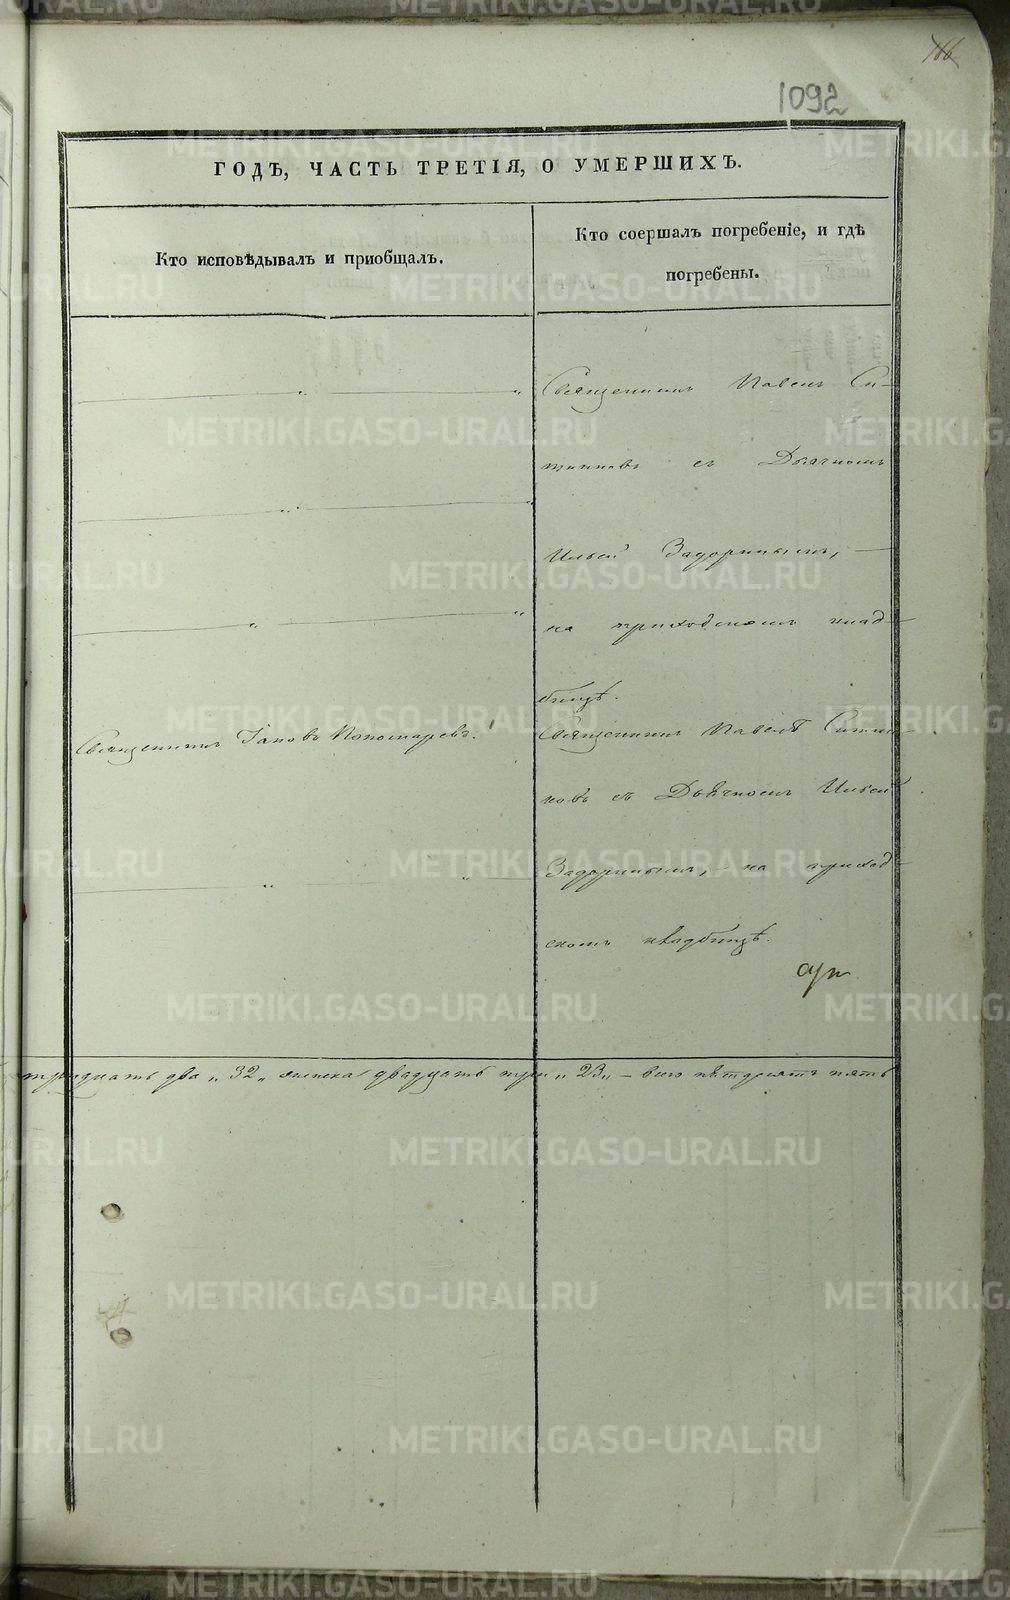 166
1092
ГОДЪ, ЧАСТЬ ТРЕТІЯ, О УМЕРШИХЪ.
Кто исповѣдывалъ и приобщалъ.
Кто соершалъ погребеніе, и гдѣ
погребены.
Священникъ Павелъ Си-
тниковъ съ Дьячкомъ
Ильей Задоринымъ,
на приходскомъ клад-
бищѣ.
Священникъ Іаковъ Пономаревъ.
Священникъ Павелъ Ситни-
ковъ съ Дьячкомъ Ильей
Задоринымъ, на приход-
скомъ кладбищѣ.
тридцать два „32„ женска двадцать три „23„ — всего пѣтдесятъ пять
METRIKI.GASO-URAL.RU